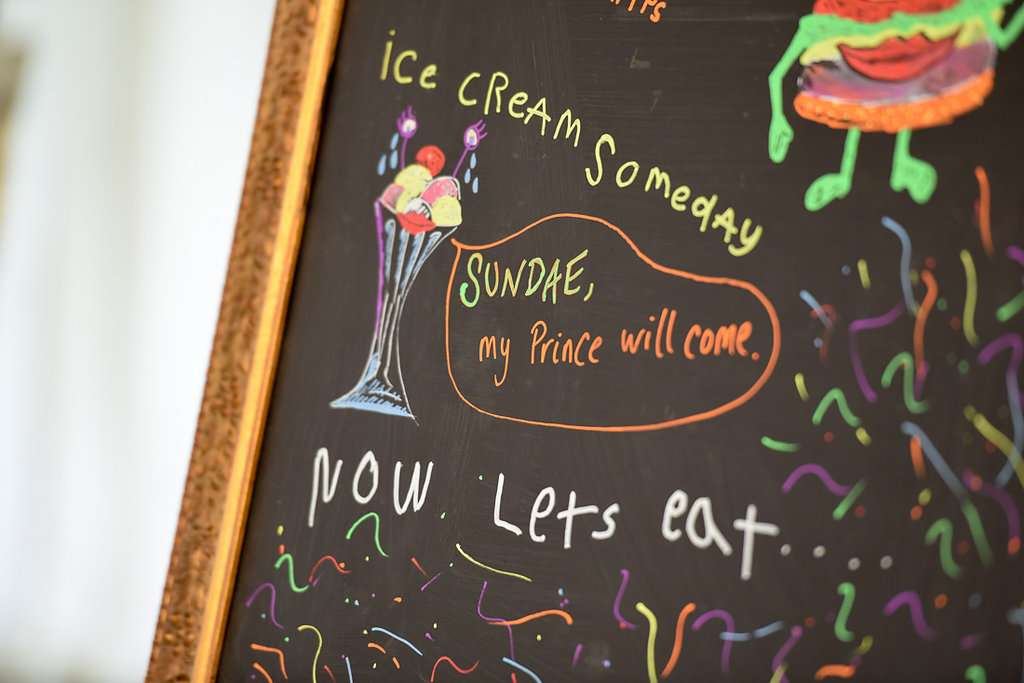 ice cREAm Someday
SUNDAE,
my Prince will come.
NOW. Lets eat.....